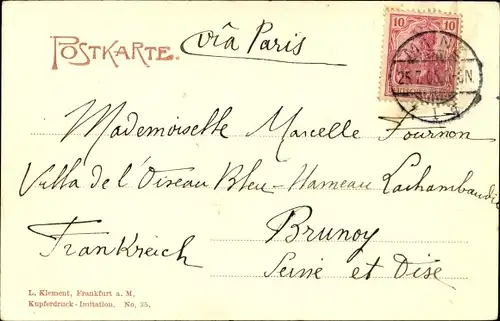 POSTKARTE.
via Paris
10 10
25.7.
Mademoiselle Marcelle Fournon
Villa de l'Oiseau Bleu - Hameau Lachambaudie
Brunoy
Frankreich
Seine et Oise
L. Klement, Frankfurt a. M.
Kupferdruck-Imitation. No. 25.